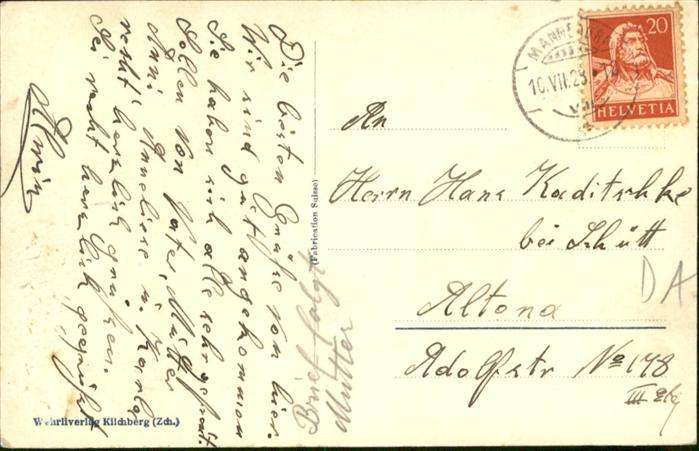 Die besten Grüße von hier.
Wir sind gut angekommen
Sie haben sich alle sehr gefreut.
Sollen von Vater, Mutter
Anni Anneliese u. Karla
recht herzlich grüßen.
Sei recht herzlich gegrüßt
Alwin
Brief folgt
Mutter
(Fabrication Suisse)
Wehrliverlag Kilchberg (Zch.)
10.VII.23
20
HELVETIA
An
Herrn Hans Kaditschke
bei Schütt
Altona
Adolfstr No 178
III
DA